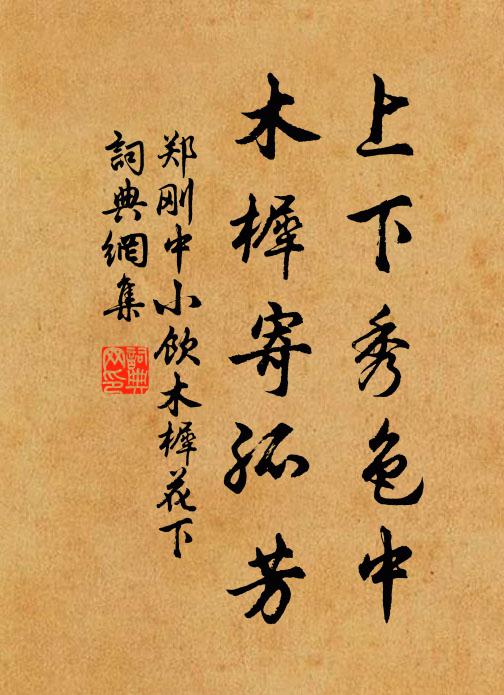 上下秀色中
木樨寄孤芳
郑刚中小饮木樨花下
词典網集
詞典網印